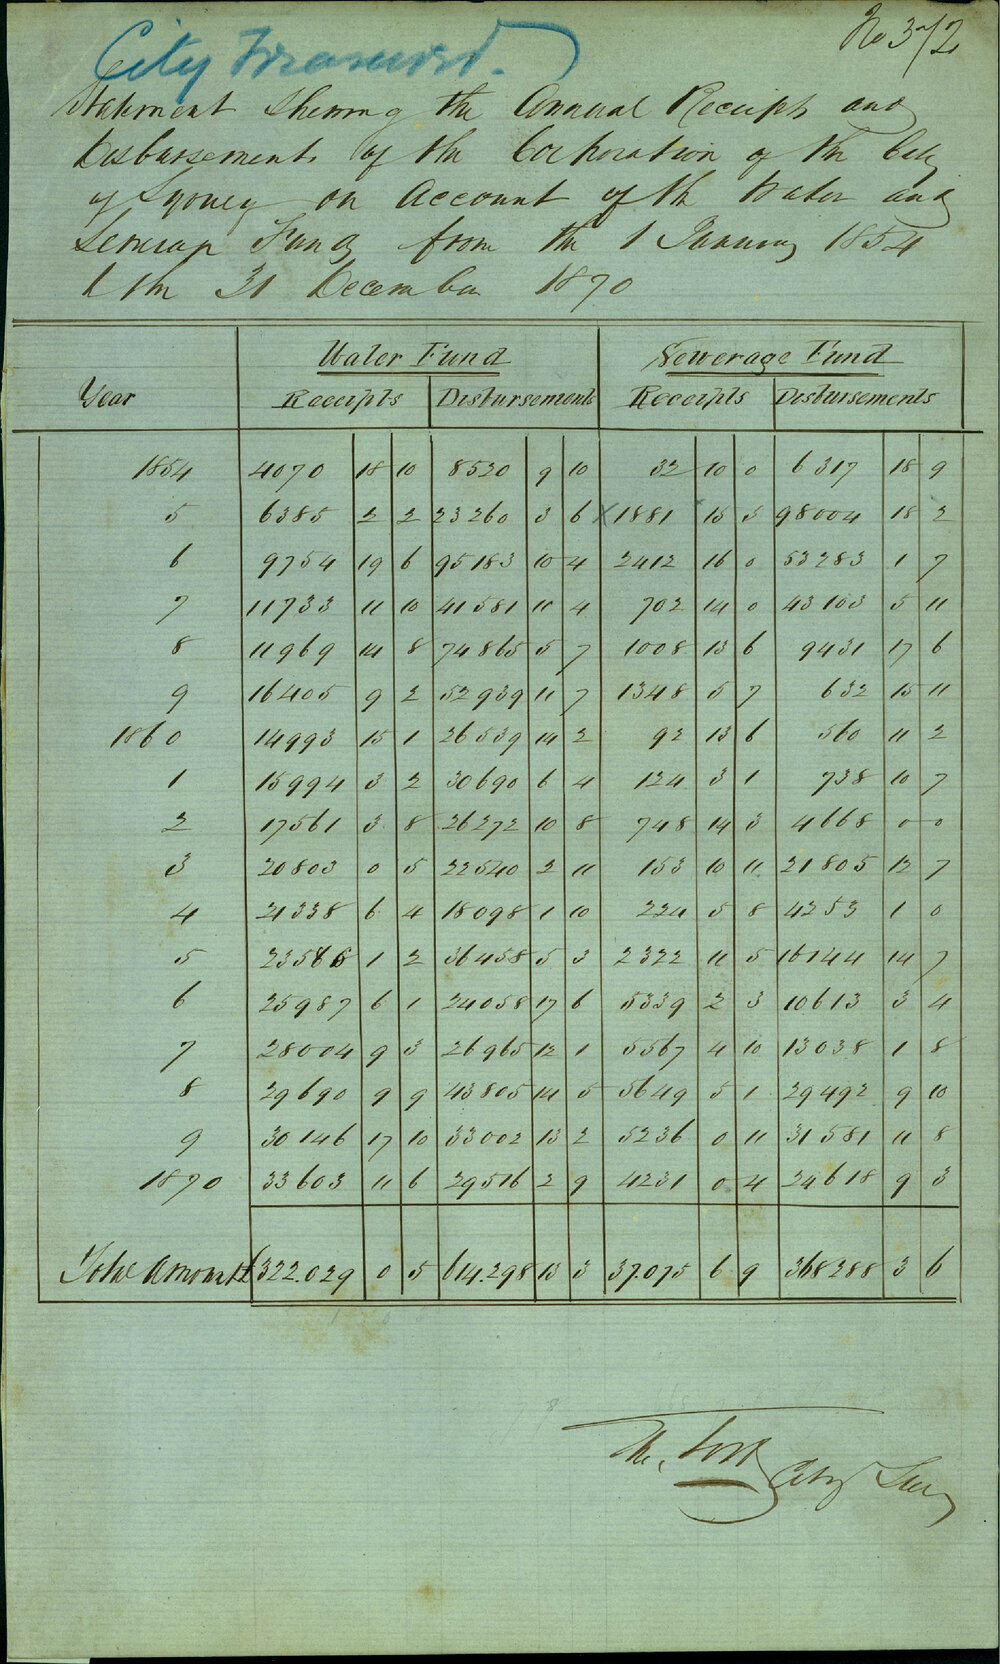 No 372
City Treasurer.
Statement Shewing the Annual Receipts and
Disbursements of the Corporation of the City
of Sydney on Account of the Water and
Sewerage Funds from the 1 January 1854
to the 31 December 1870
Water Fund Sewerage Fund
Year Receipts Disbursements Receipts Disbursements
1854 4070 18 10 8520 9 10 32 10 0 6317 18 9
5 6385 2 2 23260 3 6 X 1881 15 5 98004 18 2
6 9754 19 6 95183 10 4 2412 16 0 53283 1 7
7 11733 11 10 41581 11 4 702 14 0 43103 5 11
8 11969 14 8 74865 5 7 1008 13 6 9431 17 6
9 16405 9 2 52939 11 7 1348 5 7 632 15 11
1860 14993 15 1 26539 14 2 92 13 6 560 11 2
1 15994 3 2 30690 6 4 124 3 1 738 10 7
2 17561 3 8 26272 10 8 748 14 3 4668 0 0
3 20803 0 5 22540 2 11 153 10 11 21805 12 7
4 21338 6 4 18098 1 10 224 5 8 4253 1 0
5 23586 1 2 36458 5 3 2322 11 5 16144 14 7
6 25987 6 1 24058 17 6 5339 2 3 10613 3 4
7 28004 9 3 26965 12 1 5567 4 10 13038 1 8
8 29690 9 9 43805 14 5 5649 5 1 29492 9 10
9 30146 17 10 33002 13 2 5236 0 11 31581 11 8
1870 33603 11 6 29516 2 9 4231 0 4 24618 9 3
Total Amount £322.029 0 5 614.298 13 3 37.075 6 9 368288 3 6
City